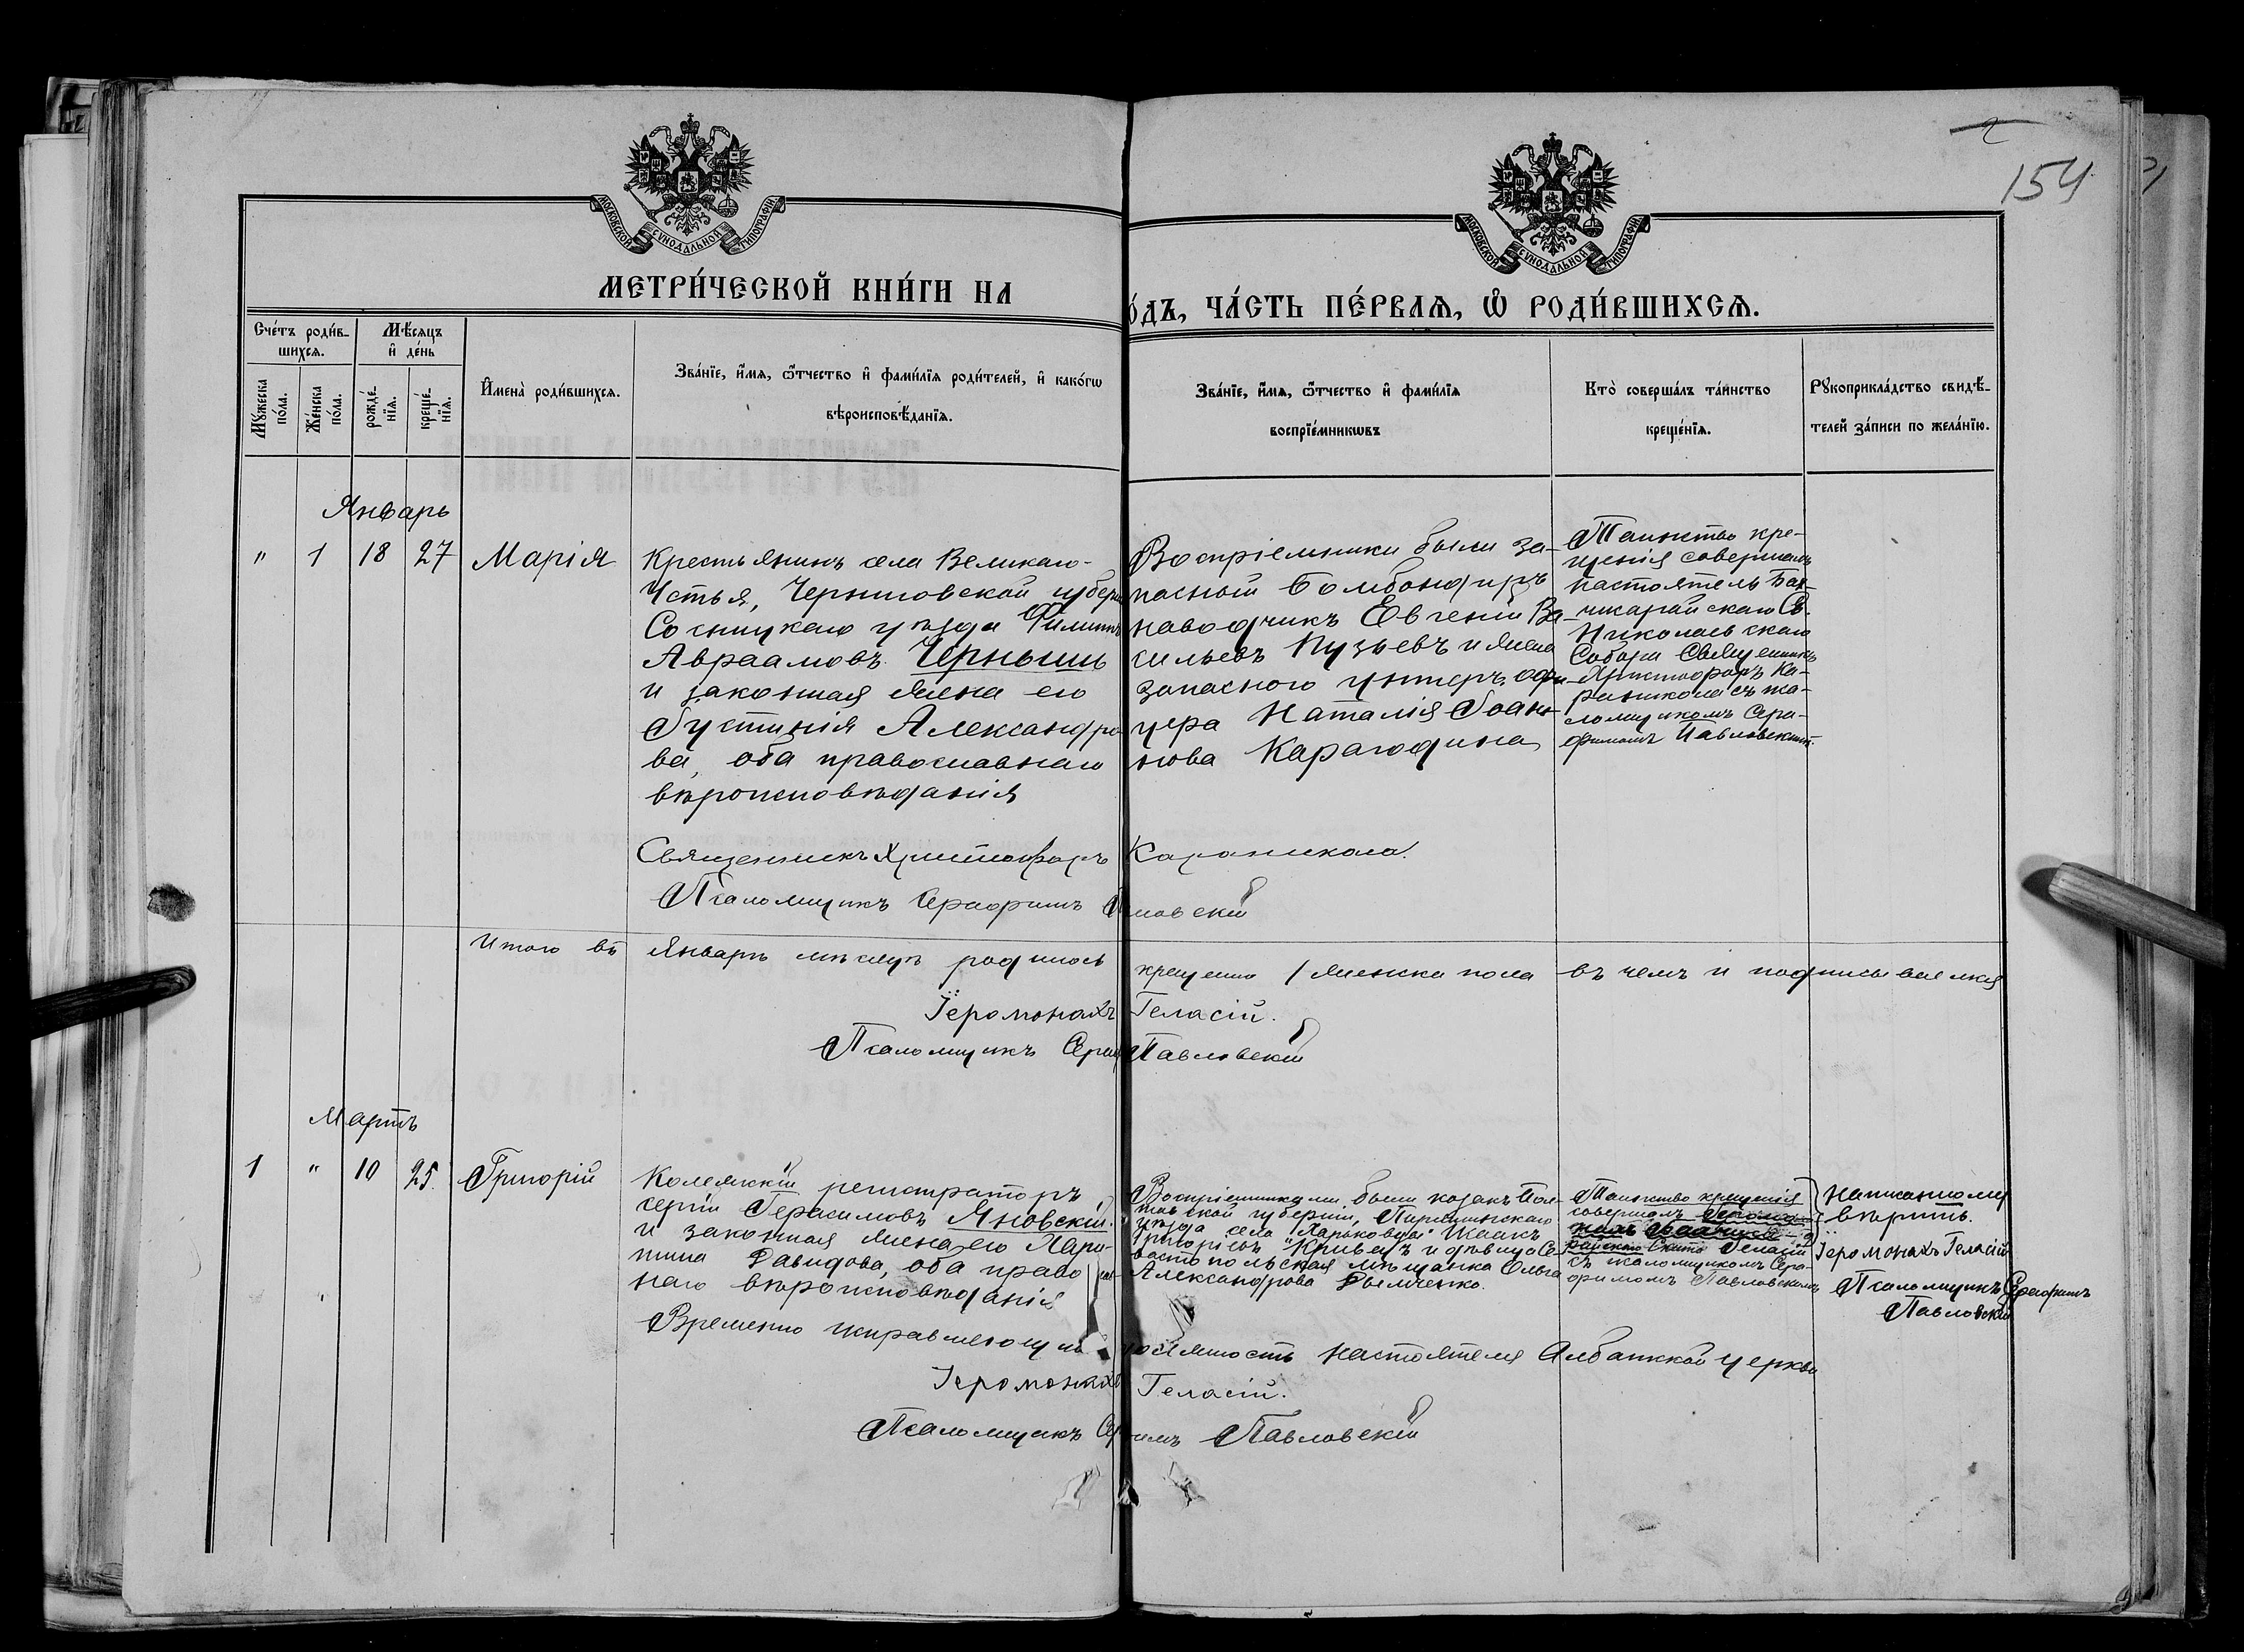 154
МОСКОВСКОЙ СѴНОДАЛЬНОЙ ТИПОГРАФІИ
МОСКОВСКОЙ СѴНОДАЛЬНОЙ ТИПОГРАФІИ
МЕТРИ́ЧЕСКОЙ КНИ́ГИ НА
О́ДЪ, ЧА́СТЬ ПЕ́РВАѦ, Ѡ҆ РОДИ́ВШИХСѦ.
Сче́тъ роди́в-
шихсѧ.
Мѣ́сѧцъ
и҆ де́нь
Мꙋ́жеска
по́ла.
Же́нска
по́ла.
рожде́-
нїѧ.
креще́-
нїѧ.
И҆мена̀ роди́вшихсѧ.
Зва́нїе, и҆́мѧ, ѻ҆́тчество и҆ фами́лїѧ роди́телей, и҆ како́гѡ
вѣроисповѣ́данїѧ.
Зва́нїе, и҆́мѧ, ѻ҆́тчество и҆ фами́лїѧ
воспрїе́мникѡвъ
Кто̀ соверша́лъ та́инство
креще́нїѧ.
Рꙋкоприкла́дство свидѣ́-
телей за́писи по жела́нїю.
Январь
" 1 18 27 Марія
Крестьянинъ села Великаго-
Устья, Черниговской губерн
Сосницкаго уѣзда Филиппъ
Авраамовъ Чернышъ
и законная жена его
Іустинія Александро
ва, оба православнаго
вѣроисповѣданія
Воспріемники были за-
пасной Бомбандиръ
наводчикъ Евгеній Ва-
сильевъ Пузыевъ и жена
запасного унтеръ офи-
цера Наталія Іоан-
нова Карагодина
Таинство кре-
щенія совершалъ
настоятель Бах-
чисарайскаго Св.
Николаевскаго
Собора Священникъ
Христофоръ Ка-
раникола съ пса-
ломщикомъ Сера-
фимомъ Павловскимъ
Священникъ Христофоръ Караникола.
Псаломщикъ Серафимъ Павловскій
Итого въ Январѣ мѣсяцѣ родилось крещено 1 женска пола въ чемъ и подписываемся
Іеромонахъ Геласій.
Псаломщикъ Сераф Павловскій
Мартъ
1 " 10 25. Григорій
Коллежскій регистраторъ,
сергій Герасимовъ Яновскій
и законная жена его Хари-
тина Давидова, оба право слав
наго вѣроисповѣданія
Воспріемниками были козакъ Пол-
тавской губерніи, Пирятинскаго
уѣзда села "Харьковцы" Исаакъ
Григорьевъ "Кривецъ и дѣвица Се-
вастопольская мѣщанка Ольга
Александрова Демченко.
Таинство крещенія
совершалъ Іеромо-
нахъ Бахчиса-
райскаго Скита Геласій
съ псаломщикомъ Сера-
фимомъ Павловскимъ
Написанному
вѣрить.
Іеромонахъ Геласій
Псаломщикъ Серафимъ
Павловскій
Временно исправляющій должность настоятеля Албатской церкви
Іеромонахъ Геласій.
Псаломщикъ Серафимъ Павловскій